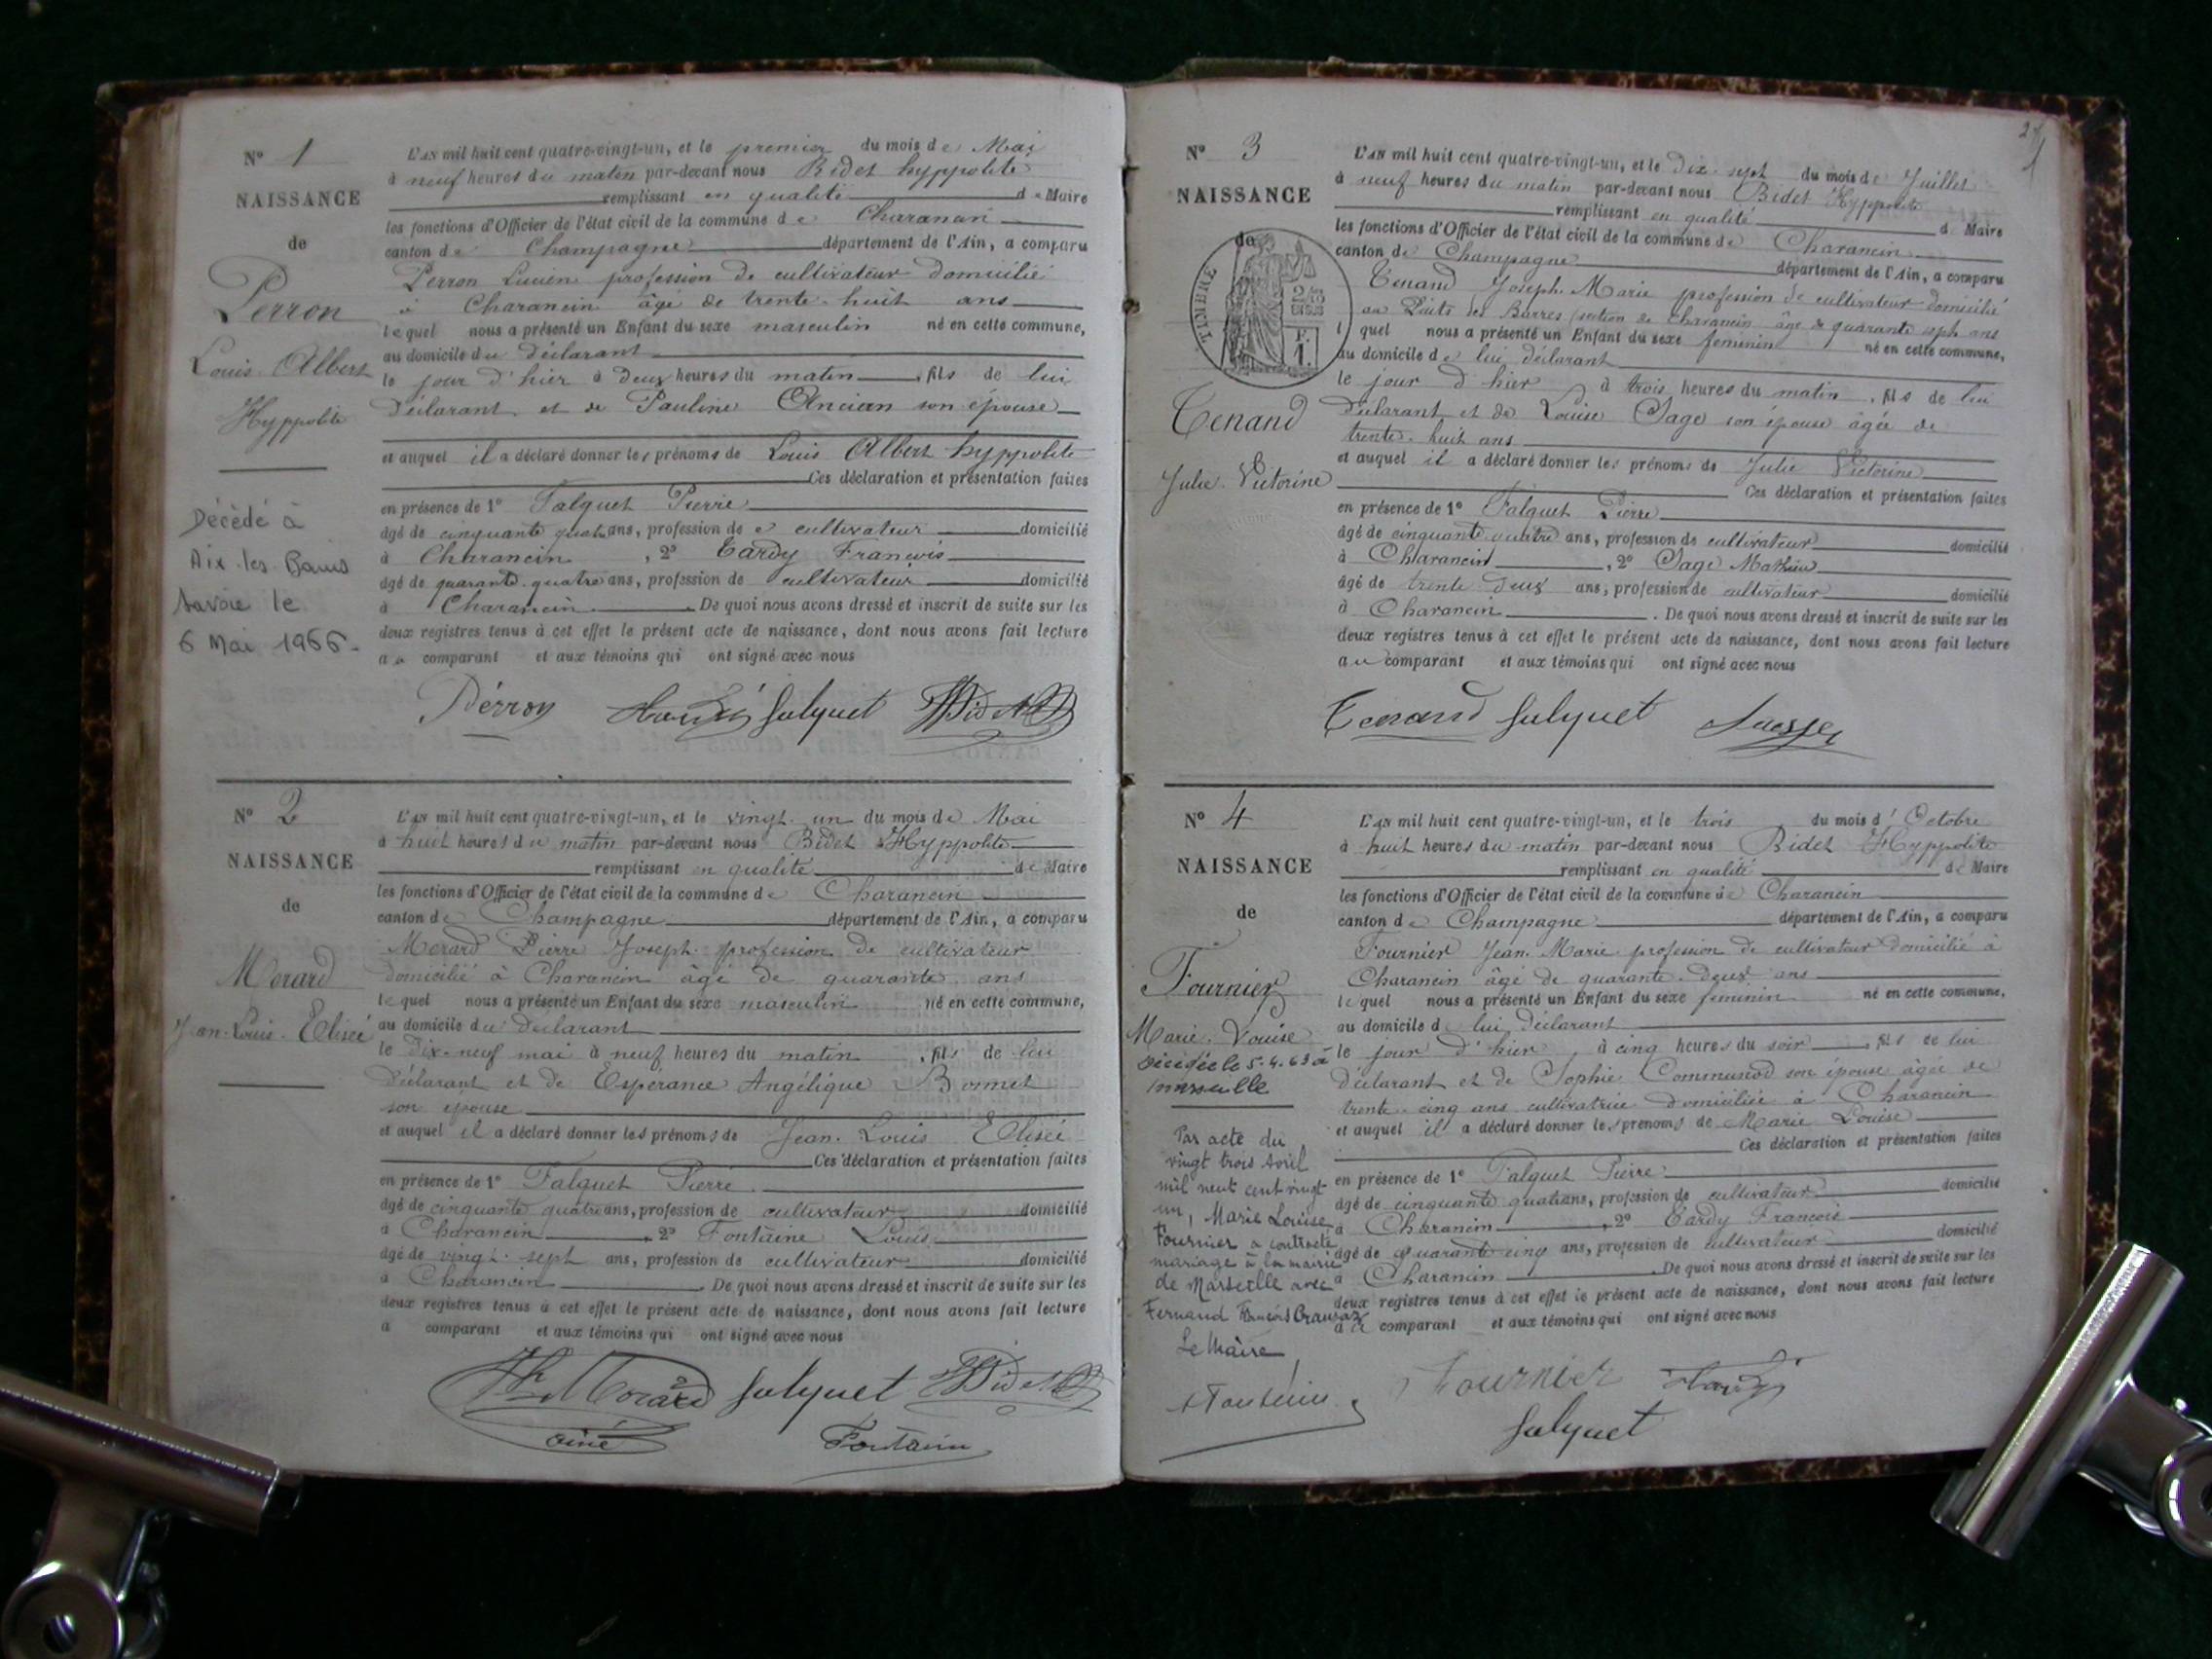 Nº 1
NAISSANCE
de
Perron
Louis Albert
Hyppolite
Décédé à
Aix les Bains
Savoie le
6 Mai 1966.
L'AN mil huit cent quatre-vingt-un, et le premier du mois de Mai
à neuf heures du matin par-devant nous Bidet hyppolite
remplissant en qualité de Maire
les fonctions d'Officier de l'état civil de la commune de Charancin
canton de Champagne département de l'Ain, a comparu
Perron Lucien profession de cultivateur domicilié
à Charancin âgé de trente-huit ans
lequel nous a présenté un Enfant du sexe masculin né en cette commune,
au domicile du déclarant
le jour d'hier à deux heures du matin, fils de lui
déclarant et de Pauline Ancian son épouse
et auquel il a déclaré donner les prénoms de Louis Albert hyppolite
Ces déclaration et présentation faites
en présence de 1º Falquet Pierre
âgé de cinquante quatre ans, profession de cultivateur domicilié
à Charancin, 2º Tardy François
âgé de quarante-quatre ans, profession de cultivateur domicilié
à Charancin. De quoi nous avons dressé et inscrit de suite sur les
deux registres tenus à cet effet le présent acte de naissance, dont nous avons fait lecture
au comparant et aux témoins qui ont signé avec nous
Pérron Falquet HBidet
Nº 2
NAISSANCE
de
Morard
Jean-Louis-Elisée
L'AN mil huit cent quatre-vingt-un, et le vingt-un du mois de Mai
à huit heures du matin par-devant nous Bidet Hyppolite
remplissant en qualité de Maire
les fonctions d'Officier de l'état civil de la commune de Charancin
canton de Champagne département de l'Ain, a comparu
Morard Pierre Joseph profession de cultivateur
domicilié à Charancin âgé de quarante ans
lequel nous a présenté un Enfant du sexe masculin né en cette commune,
au domicile du déclarant
le dix-neuf mai à neuf heures du matin, fils de lui
déclarant et de Espérance Angélique Bonnet
son épouse
et auquel il a déclaré donner les prénoms de Jean-Louis Elisée
Ces déclaration et présentation faites
en présence de 1º Falquet Pierre
âgé de cinquante quatre ans, profession de cultivateur domicilié
à Charancin, 2º Fontaine Louis
âgé de vingt-sept ans, profession de cultivateur domicilié
à Charancin. De quoi nous avons dressé et inscrit de suite sur les
deux registres tenus à cet effet le présent acte de naissance, dont nous avons fait lecture
a comparant et aux témoins qui ont signé avec nous
Morard Falquet HBidet
ainé Fontaine
Nº 3
NAISSANCE
de
TIMBRE
F.
1.
Tenand
Julie-Victorine
L'AN mil huit cent quatre-vingt-un, et le dix-sept du mois de Juillet
à neuf heures du matin par-devant nous Bidet Hyppolite
remplissant en qualité de Maire
les fonctions d'Officier de l'état civil de la commune de Charancin
canton de Champagne département de l'Ain, a comparu
Tenand Joseph-Marie profession de cultivateur domicilié
au Puits des Barres section de Charancin âgé de quarante sept ans
lquel nous a présenté un Enfant du sexe feminin né en cette commune,
au domicile de lui déclarant
le jour d'hier à trois heures du matin, fils de lui
déclarant et de Louise Sage son épouse âgée de
trente-huit ans
et auquel il a déclaré donner les prénoms de Julie Victorine
Ces déclaration et présentation faites
en présence de 1º Falquet Pierre
âgé de cinquante quatre ans, profession de cultivateur domicilié
à Charancin, 2º Sage Mathieu
âgé de trente deux ans, profession de cultivateur domicilié
à Charancin. De quoi nous avons dressé et inscrit de suite sur les
deux registres tenus à cet effet le présent acte de naissance, dont nous avons fait lecture
au comparant et aux témoins qui ont signé avec nous
Tenand Falquet
Nº 4
NAISSANCE
de
Fournier
Marie-Louise
Décédée le 5-4-63 à
Marseille
Par acte du
vingt trois Avril
mil neuf cent vingt
un, Marie Louise
Fournier a contracté
mariage à la mairie
de Marseille avec
Fernand François
Le Maire,
L'AN mil huit cent quatre-vingt-un, et le trois du mois d'Octobre
à huit heures du matin par-devant nous Bidet Hyppolite
remplissant en qualité de Maire
les fonctions d'Officier de l'état civil de la commune de Charancin
canton de Champagne département de l'Ain, a comparu
Fournier Jean-Marie profession de cultivateur domicilié à
Charancin âgé de quarante-deux ans
lequel nous a présenté un Enfant du sexe feminin né en cette commune,
au domicile de lui déclarant
le jour d'hier, à cinq heures du soir, fils de lui
déclarant et de Sophie Communod son épouse âgée de
trente-cinq ans cultivatrice domiciliée à Charancin
et auquel il a déclaré donner les prénoms de Marie Louise
Ces déclaration et présentation faites
en présence de 1º Falquet Pierre
âgé de cinquante quatre ans, profession de cultivateur domicilié
à Charancin, 2º Tardy François
âgé de quarante cinq ans, profession de cultivateur domicilié
à Charancin. De quoi nous avons dressé et inscrit de suite sur les
deux registres tenus à cet effet le présent acte de naissance, dont nous avons fait lecture
au comparant et aux témoins qui ont signé avec nous
Fournier
Falquet